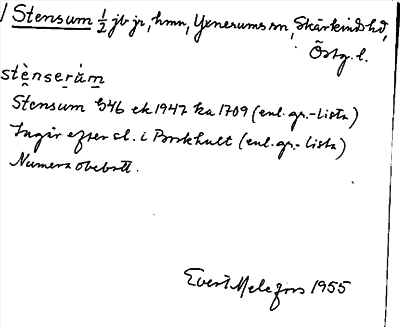 Stensum ½ jb jr, hmn, Yxnerums sn, Skärkinds hd,
Östg. l.
stènseràm
Stensum 346 ek 1947 ka 1709 (enl. gr.-lista)
Ingår efter sl. i Borkhult (enl. gr.-lista)
Numera obebott.
Evert Melefors 1955